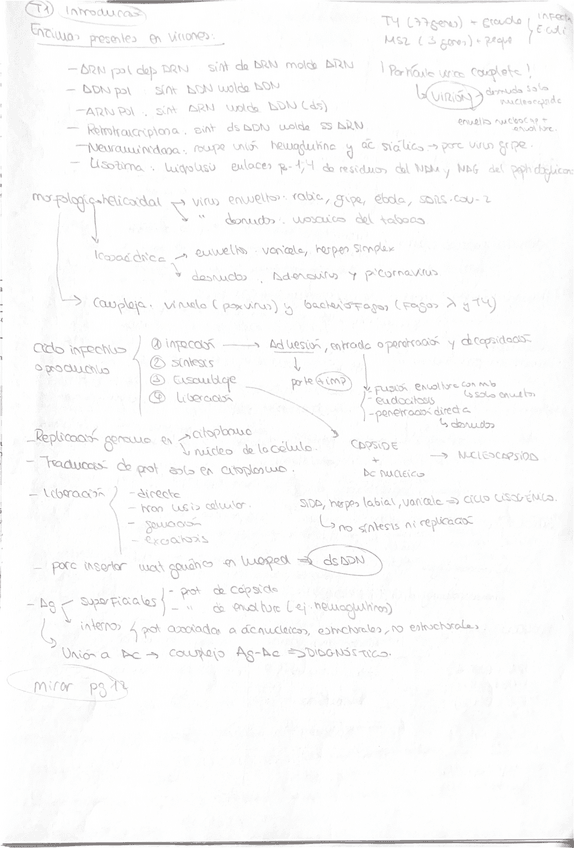 T1 Introducción
T4 (77 genes) + grande } infecta
MS2 (3 genes) + peque } E. coli
Enzimas presentes en viriones:
- ARN pol dep ARN sint de ARN molde ARN
- ADN pol sint ADN molde ADN
- ARN Pol. sint ARN molde ADN (ds)
- Retrotranscriptasa. sint dsADN molde ss ARN
- Neuraminidasa: rompe unión hemaglutina y ác siálico → para virus gripe.
- Lisozima: hidrólisis enlaces β-1,4 de residuos del NAM y NAG del peptidoglicano
¡Partícula vírica completa!
↳ VIRIÓN → desnuda solo nucleocápside
envuelto nucleocap + envoltura.
morfología helicoidal → virus envueltos: rabia, gripe, ebola, SARS-COV-2
→ " desnudos: mosaico del tabaco
Icosaédrica → envueltos: varicela, herpes simplex
→ desnudos. Adenovirus y picornavirus
→ compleja. viruela (poxvirus) y bacteriófagos (Fagos λ y T4)
Ciclo infectivo o productivo
① infección → Adhesión, entrada o penetración y decapsidación
② síntesis
③ Ensamblaje
④ Liberación
parte + imp
- Fusión envoltura con mb ↳ solo envueltos
- endocitosis
- penetración directa ↳ desnudos
- Replicación genoma en → citoplasma
→ núcleo de la célula.
CAPSIDE + Ac nucleico → NUCLEOCAPSIDA
- Traducción de prot solo en citoplasma.
- Liberación
- directa
- tras lisis celular.
- gemación
- exocitosis
SIDA, herpes labial, varicela ⇒ CICLO LISOGÉNICO.
↳ no síntesis ni replicación
- para insertar mat genético en huésped ⇒ dsADN
- Ag superficiales - prot de cápside
- " de envoltura (ej. hemaglutinina)
internos prot asociadas a ác nucleicos, estructurales, no estructurales.
↳ Unión a Ac → complejo Ag-Ac ⇒ DIAGNÓSTICO.
mirar pg 12